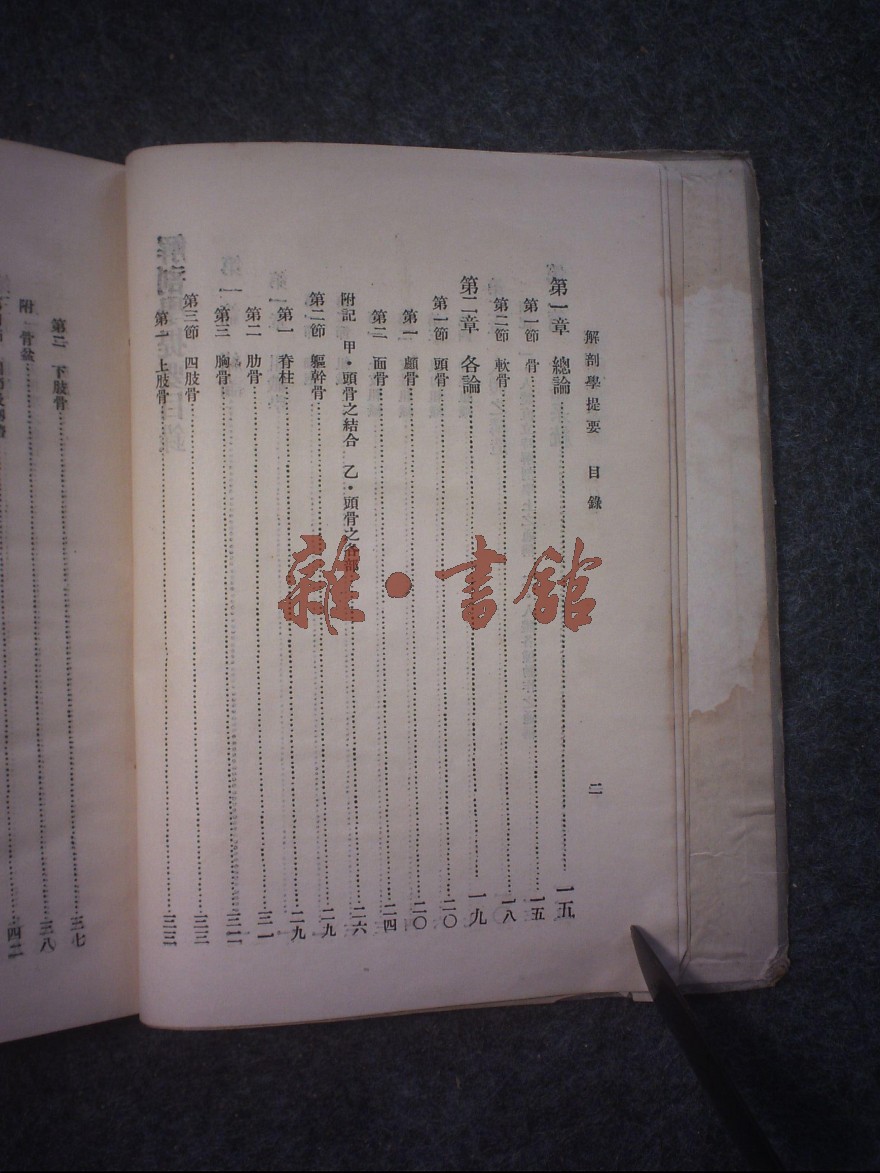 解剖學提要 目錄
二
第一章 總論 一五
第一節 骨 一五
第二節 軟骨 一八
第二章 各論 一九
第一節 頭骨 二〇
第一 顱骨 二〇
第二 面骨 二四
附記 甲·頭骨之結合 乙·頭骨之各部 二六
第二節 軀幹骨 二九
第一 脊柱 二九
第二 肋骨 三一
第三 胸骨 三二
第三節 四肢骨 三三
第一 上肢骨 三三
第二 下肢骨 三七
附 骨盆 三八
四二
雜·書館